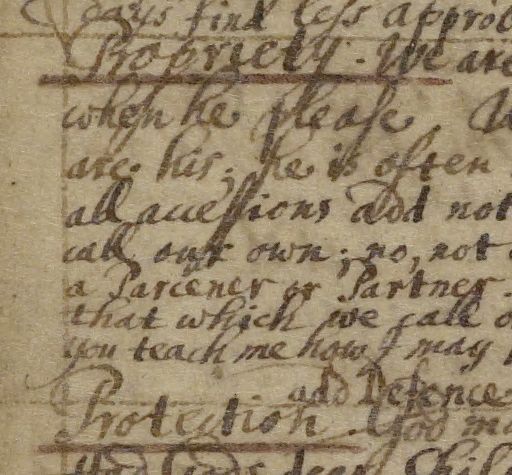 days find less approb
Propriety. We are
when he please
are his; he is often
all accessions add not
call our own; no, not
a Parcener or Partner
that which we call o
you teach me how I may
add Defence
Protection. God ma